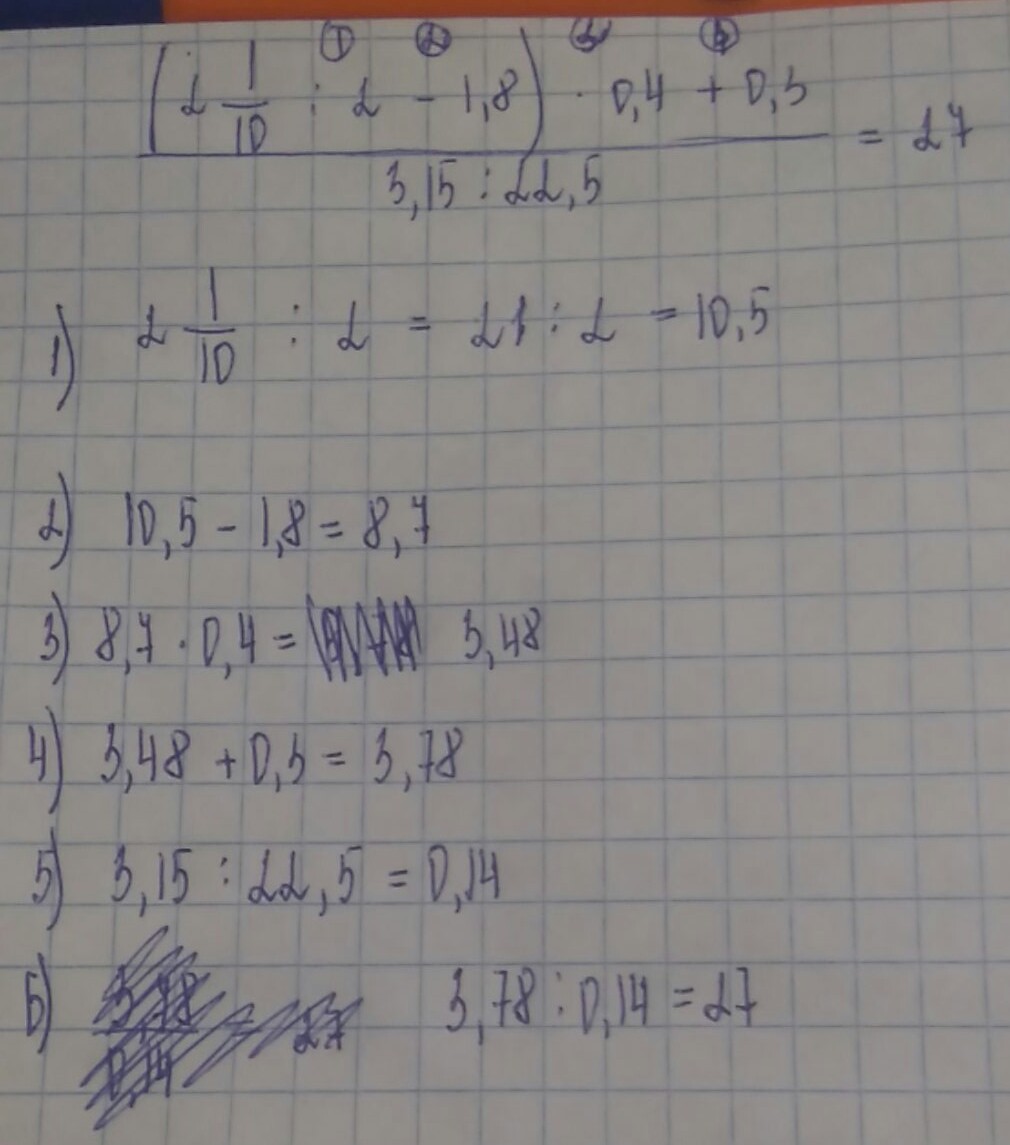 ① ② ③ ④
(2 1/10 : 2 - 1,8) · 0,4 + 0,3
3,15 : 22,5
= 27
1) 2 1/10 : 2 = 21 : 2 = 10,5
2) 10,5 - 1,8 = 8,7
3) 8,7 · 0,4 = 3,48
4) 3,48 + 0,3 = 3,78
5) 3,15 : 22,5 = 0,14
6) 3,78 : 0,14 = 27